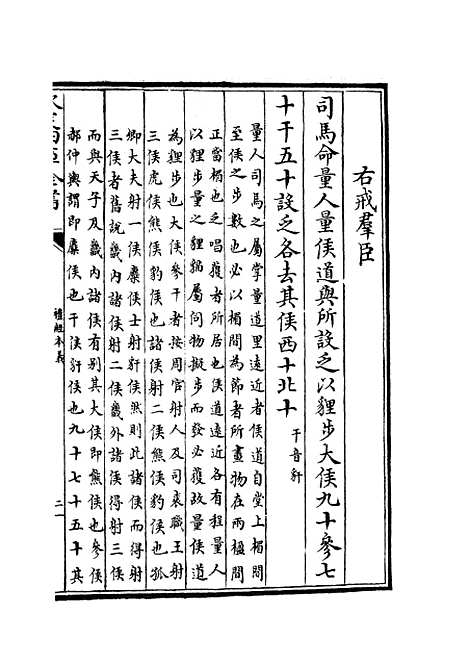 右戒羣臣
司馬命量人量侯道與所設乏以貍步大侯九十參七
十干五十設乏各去其侯西十北十干音豻
量人司馬之屬掌量道里遠近者侯道自堂上楣間
至侯之步數也必以楣間為節者所畫物在兩楹間
正當楣也乏唱獲者所居也侯道遠近各有程量人
以貍步量之貍猫屬伺物擬步而發必獲故量侯道
為貍步也大侯參干者按周官射人及司裘職王射
三侯虎侯熊侯豹侯也諸侯射二侯熊侯豹侯也孤
卿大夫射一侯麋侯士射豻侯然則此諸侯而得射
三侯者舊說畿內諸侯射二侯畿外諸侯得射三侯
而與天子及畿內諸侯有別其大侯即熊侯也參侯
郝仲輿謂即麋侯也干侯豻侯也九十七十五十其
禮經本義